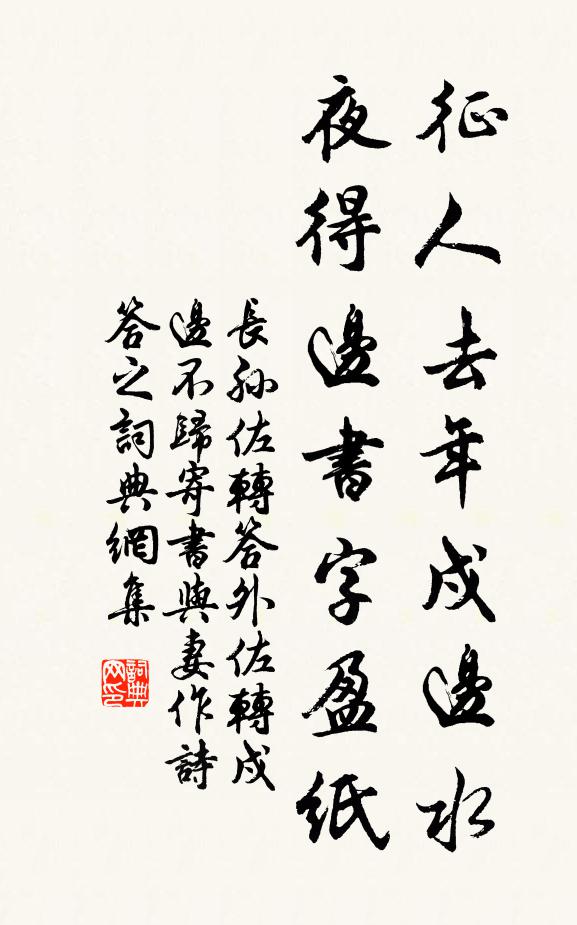 征人去年戍邊水
夜得邊書字盈紙
長孫佐轉答外佐轉戍
邊不歸寄書與妻作詩
答之詞典網集
詞典网印